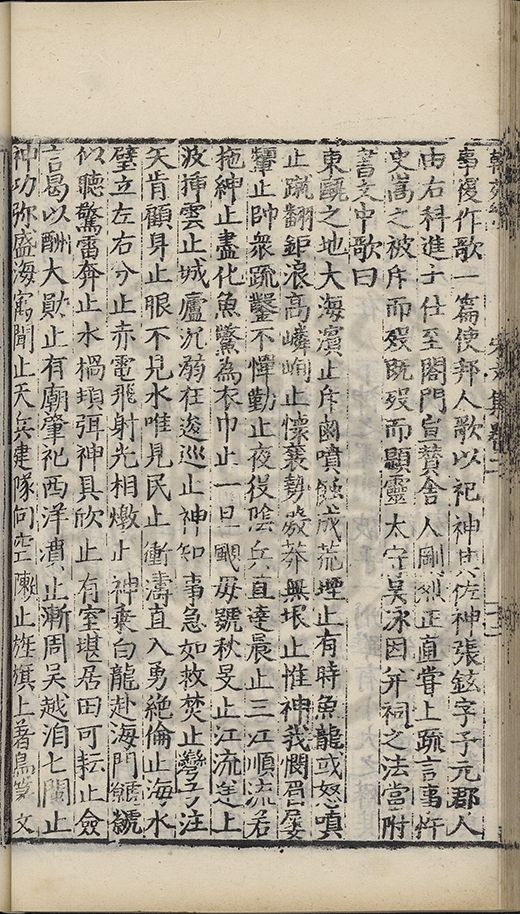 事復作歌一篇使邦人歌以祀神其佐神張鉉字子元郡人
由右科進士仕至閤門宣賛舍人剛烈正直嘗上疏言事忤
史嵩之被斥而殁既殁而顯靈太守吳泳因并祠之法當附
書文中歌曰
東甌之地大海濱止斥鹵噴蝕成荒堙止有時魚龍或怒嗔
止蹴翻鉅浪高嶙峋止懷襄勢殺莽無垠止惟神我憫眉屢
顰止帥衆疏鑿不憚勤止夜役陰兵直達晨止三江順流若
拖紳止盡化魚鱉為衣巾止一旦颶毋號秋旻止江流逆上
波挿雲止城廬沉溺在逡巡止神知事急如救焚止彎弓注
矢肯顧身止眼不見水唯見民止衝濤直入勇絶倫止海水
壁立左右分止赤電飛射光相燉止神乗白龍赴海門
似聽驚雷奔止水禍頃弭神具欣止有室堪居田可耘止僉
言曷以酬大勛止有廟肇祀西洋濆止漸周吳越洎七閩止
神功弥盛海寓聞止天兵建隊向空陳止旌旗上著鳥篆文